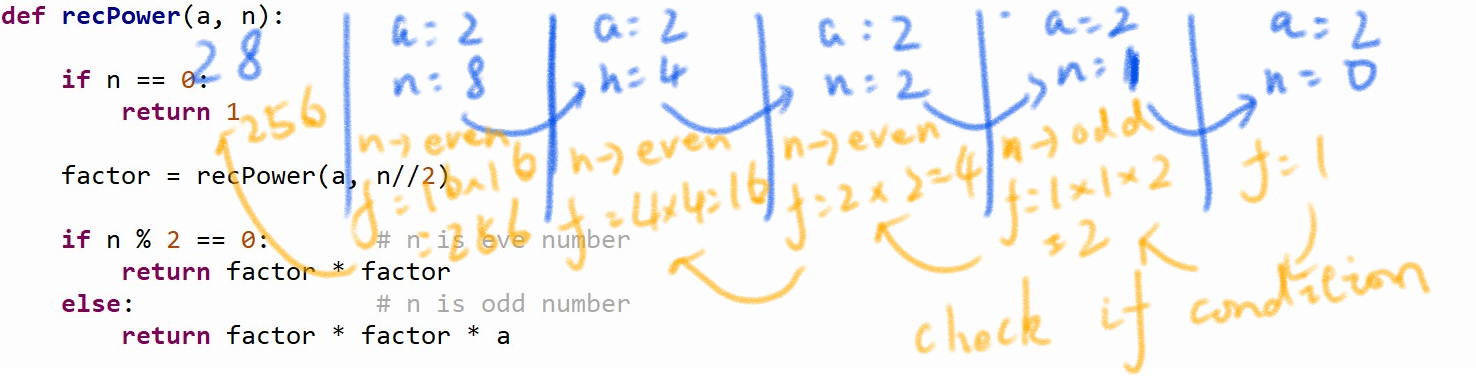 def recPower(a, n):
2 8
if n == 0:
return 1
256
factor = recPower(a, n//2)
if n % 2 == 0: # n is eve number
return factor * factor
else: # n is odd number
return factor * factor * a
a = 2
n = 8
n → even
f = 16x16
= 256
a = 2
n = 4
n → even
f = 4x4=16
a = 2
n = 2
n → even
f = 2 x 2 = 4
a = 2
n = 1
n → odd
f = 1 x 1 x 2
= 2
a = 2
n = 0
f = 1
check if condition